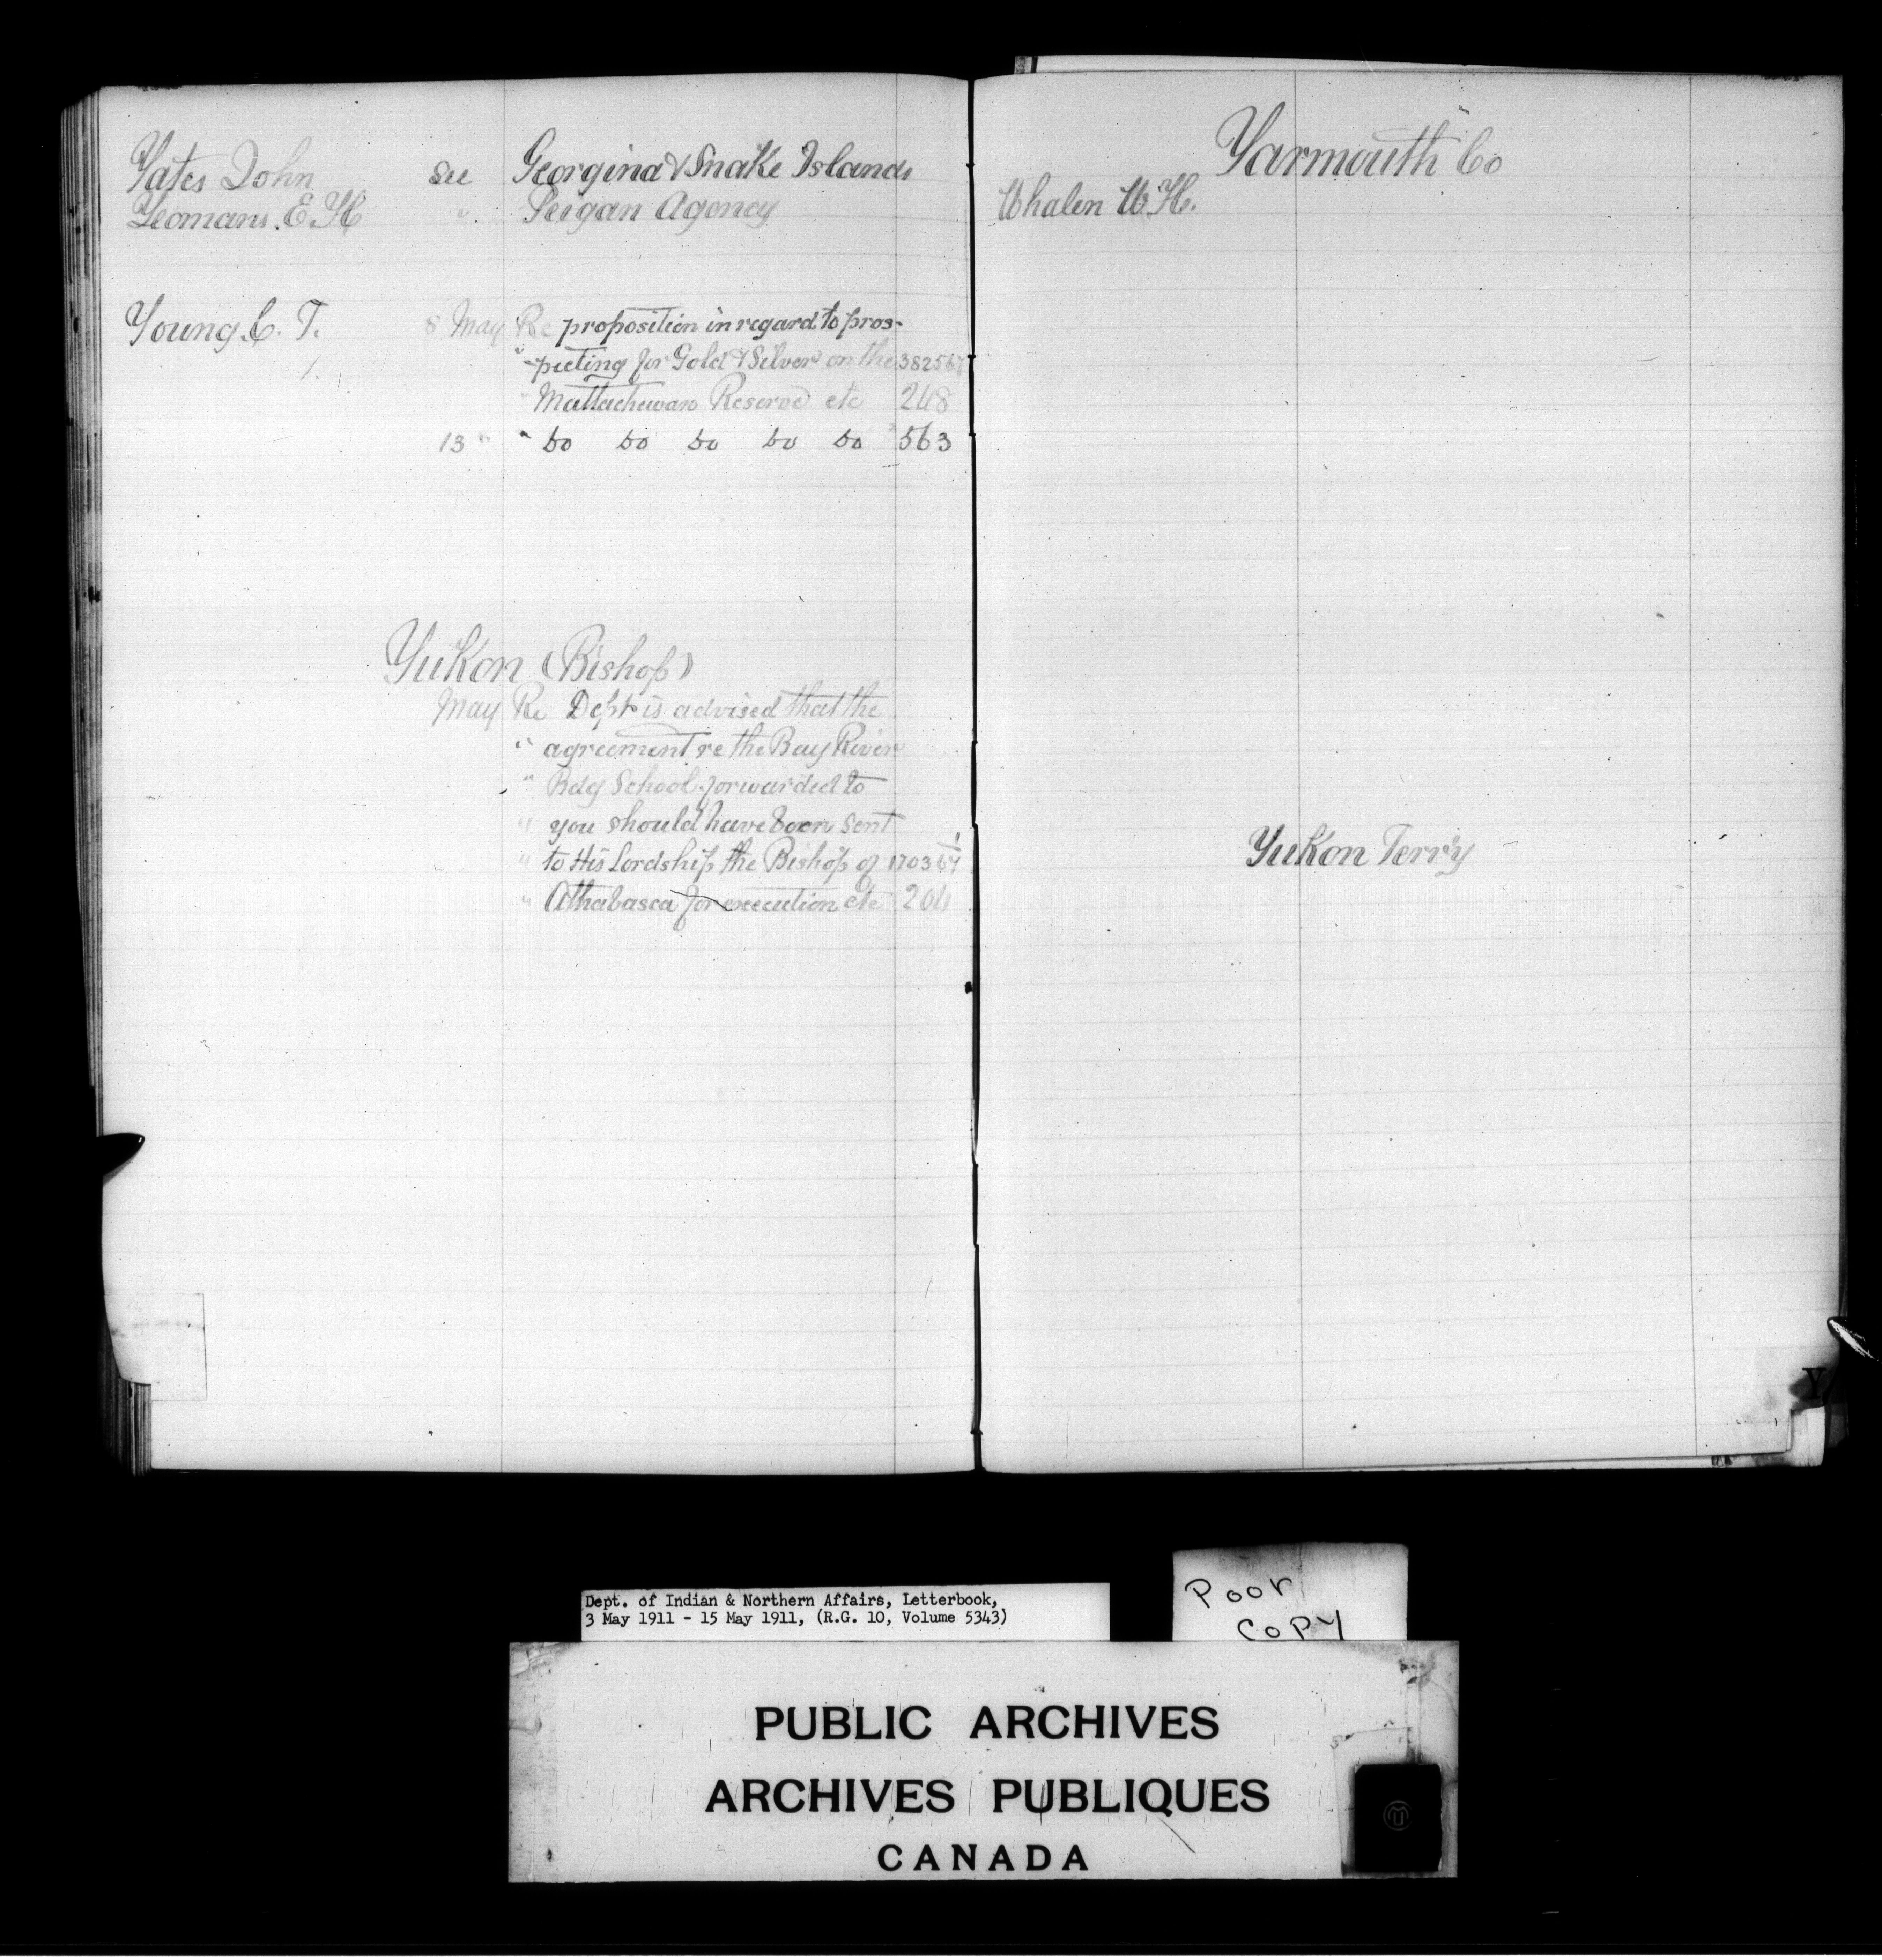 Yates John see Georgina & Snake Islands
Yeomans. E. H " Peigan Agency
Young C. T. 8 May Re proposition in regard to pros-
" -pecting for Gold & Silver on the 382567
" Mattachewan Reserve etc 248
13 " " Do Do Do Do Do 563
Yukon (Bishop)
May Re Dept is advised that the
" agreement re the Bay River
" Bdg School forwarded to
" you should have been sent
" to His Lordship the Bishop of
" Athabasca for execution etc 204
Yarmouth Co
Whalen W. H.
Yukon Terr'y
Y
Dept. of Indian & Northern Affairs, Letterbook,
3 May 1911 - 15 May 1911, (R.G. 10, Volume 5343)
Poor
Copy
PUBLIC ARCHIVES
ARCHIVES PUBLIQUES
CANADA